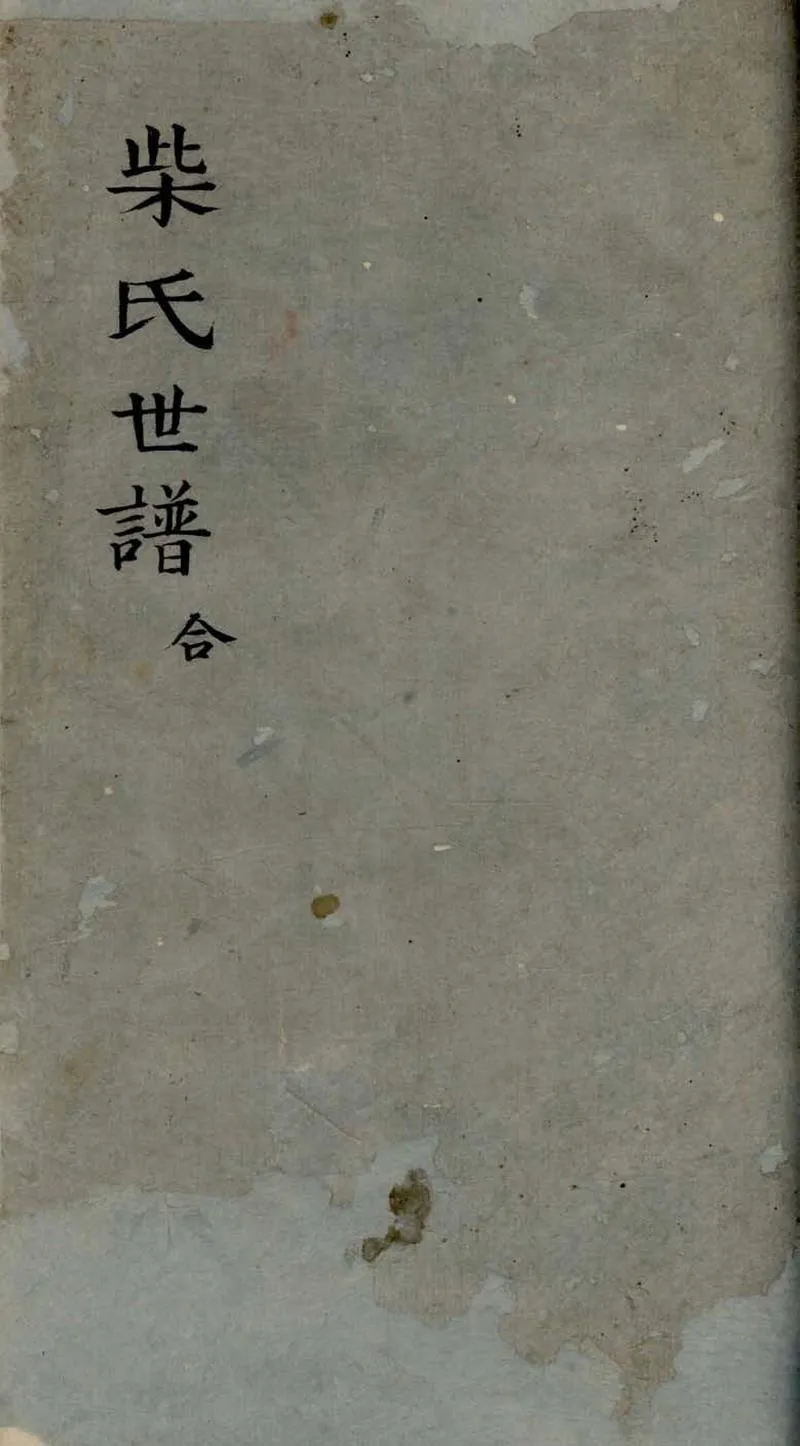 柴氏世譜 合